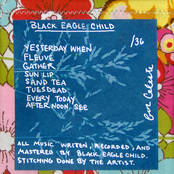 BLACK EAGLE CHILD
/36
YESTERDAY WHEN
FLEUVE
GATHER
SUN LIP
SAND TEA
TUESDEAD
EVERY TODAY
AFTERNOON, SEE
ALL MUSIC WRITEN, RECORDED, AND
MASTERED BY BLACK EAGLE CHILD.
STITCHING DONE BY THE ARTIST.